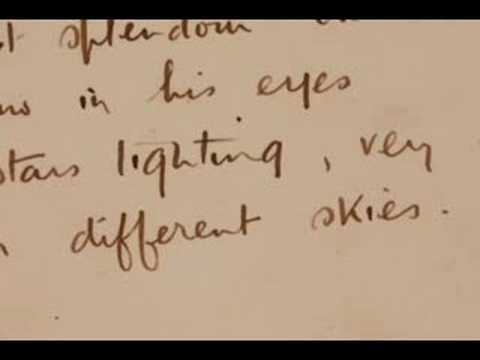 splendour
in his eyes
stars lighting, very
different skies.